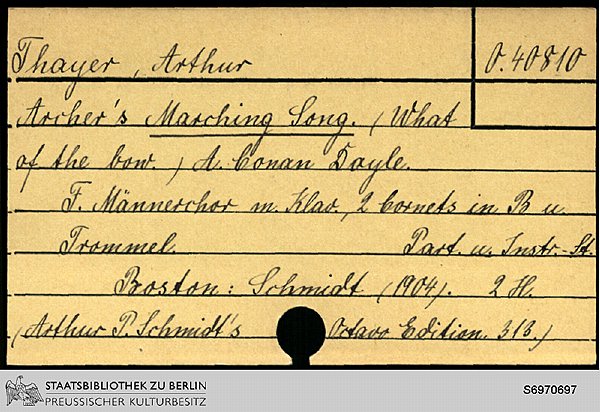 Thayer, Arthur
O. 40810
Archer's Marching Song. (What
of the bow.) A. Conan Dayle.
F. Männerchor m. Klav., 2 Cornets in B u.
Trommel. Part. u. Instr.-St.
Boston: Schmidt (1904). 2 H.
(Arthur P. Schmidt's Octavo Edition. 313.)
STAATSBIBLIOTHEK ZU BERLIN
PREUSSISCHER KULTURBESITZ
S6970697